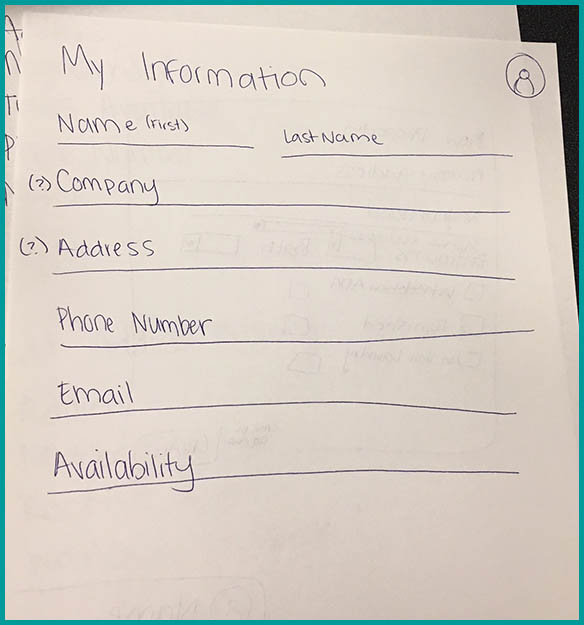 My Information
Name (First) Last Name
(?) Company
(?) Address
Phone Number
Email
Availability